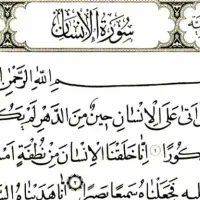 سُورَةُ الإِنسَانِ
سْمِ اللَّهِ الرَّحْمَنِ
أَتَىٰ عَلَى الْإِنسَانِ حِينٌ مِّنَ الدَّهْرِ لَمْ يَكُ
كُورًا ۝١ إِنَّا خَلَقْنَا الْإِنسَانَ مِن نُّطْفَةٍ أَمْ
لِيهِ فَجَعَلْنَاهُ سَمِيعًا بَصِيرًا ۝٢ إِنَّا هَدَيْنَاهُ ال